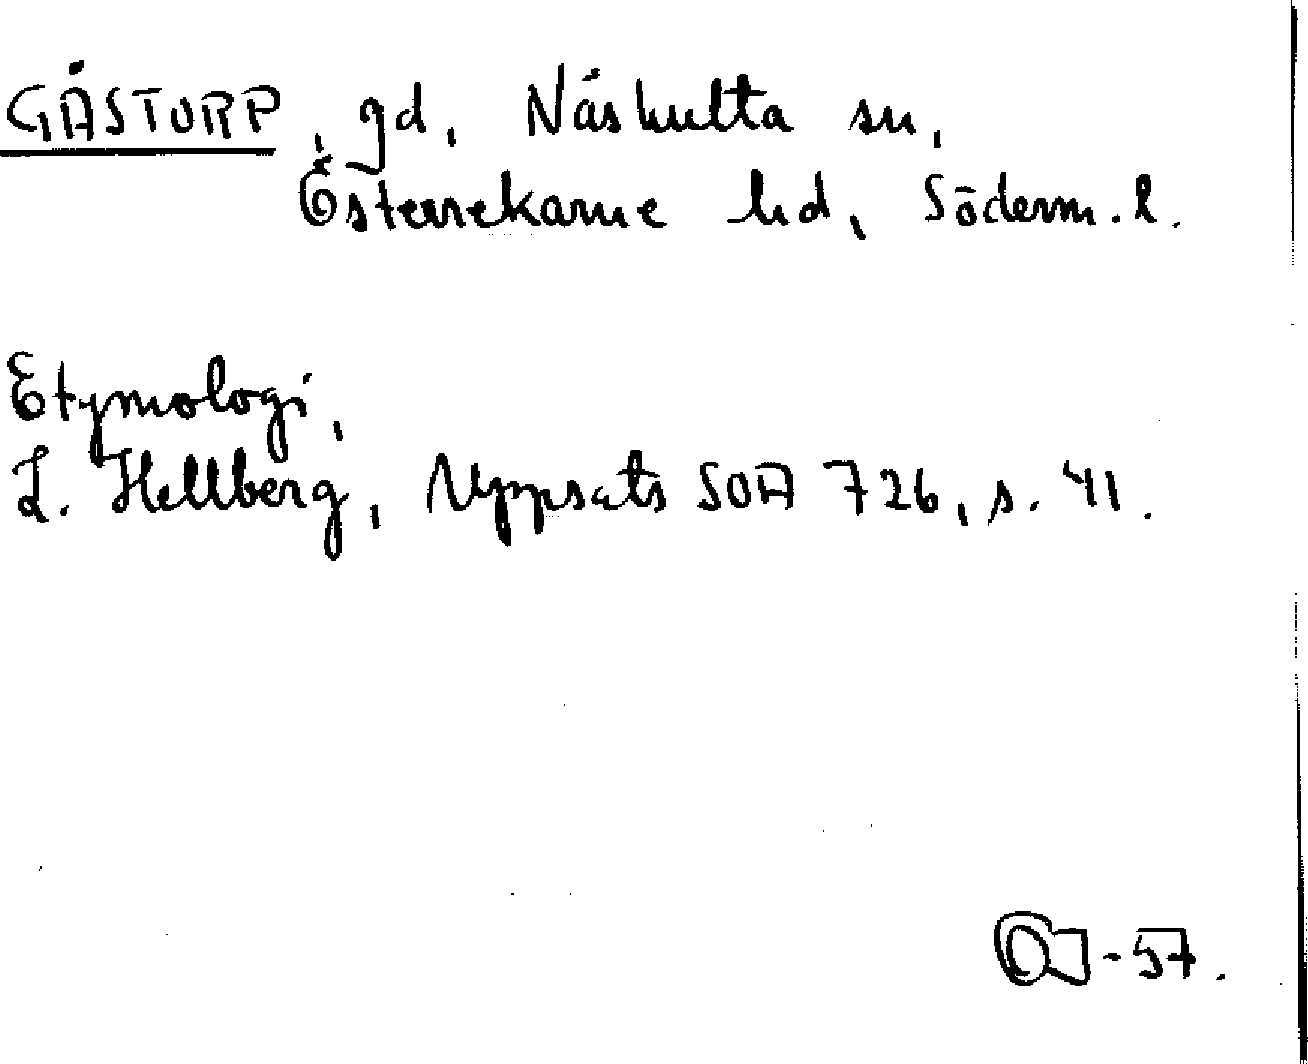 GÅSTORP, gd, Näshulta sn,
Österrekarne hd, Söderm. l.
Etymologi,
L. Hellberg, Uppsats SOA 726, s. 41.
-57.